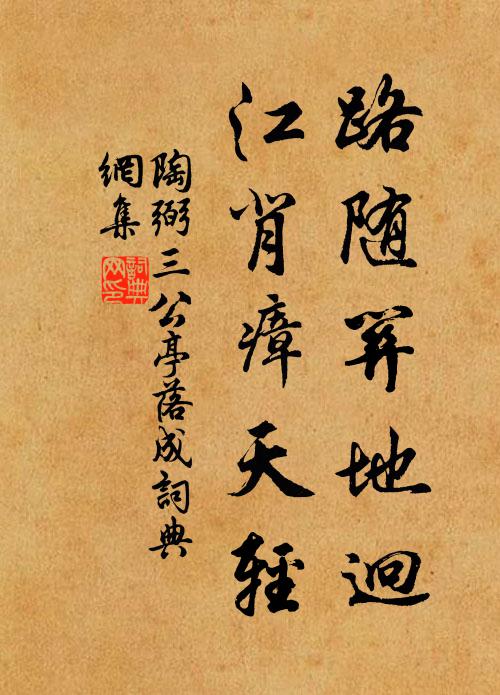 路随地逈
江背瘴天輕
陶弼三公亭落成詞典
網集
詞典網印